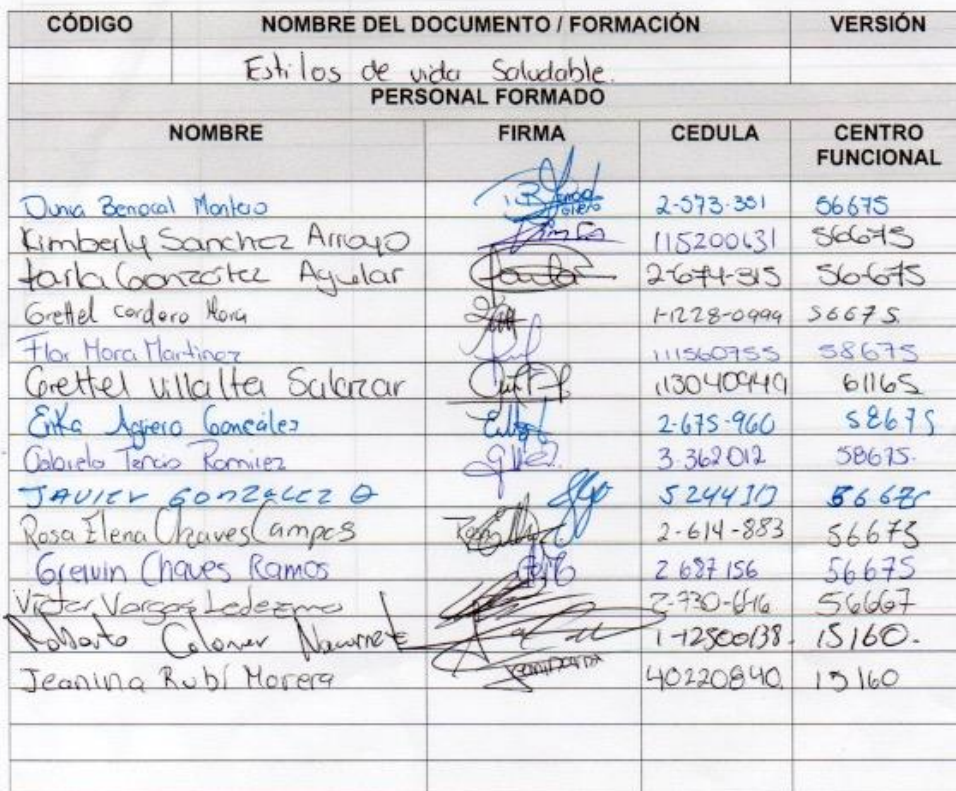 CÓDIGO NOMBRE DEL DOCUMENTO / FORMACIÓN VERSIÓN
Estilos de vida Saludable.
PERSONAL FORMADO
NOMBRE FIRMA CEDULA CENTRO FUNCIONAL
Dunia Benocal Montero 2-573-351 56675
Kimberly Sanchez Arroyo 115200631 56675
Karla González Aguilar 2-674-315 56-675
Grettel cordero Mora 1-1228-0999 56675
Flor Mora Martinez 111560755 58675
Grettel Villalta Salazar 113040949 61165
Erika Agüero González 2-675-960 58675
Ramirez 3-362012 58675.
JAVIER GONZALEZ 56675
Rosa Elena Chaves Campos 2-614-883 56675
Greivin Chaves Ramos 2 687 156 56675
Victor Vargas Ledezma 2-730-616 56667
Roberto Navarrete 1-12500138. 15160.
Jeanina Rubí Morera 40220840 15160